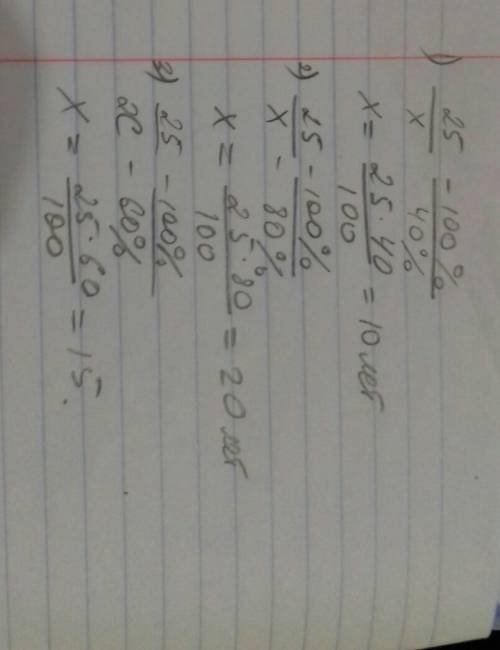 1) 25 - 100%
x 40%
x = 25·40 / 100 = 10 лет
2) 25 - 100%
x - 80%
x = 25·80 / 100 = 20 лет
3) 25 - 100%
x - 60%
x = 25·60 / 100 = 15.